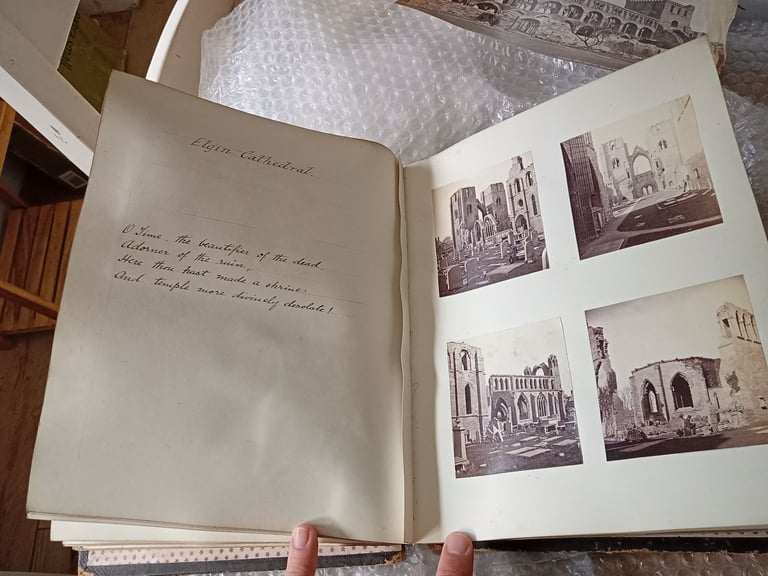 Elgin Cathedral.
O Time, the beautifier of the dead.
Adorner of the ruin,
Here thou hast made a shrine
And temple more divinely desolate!